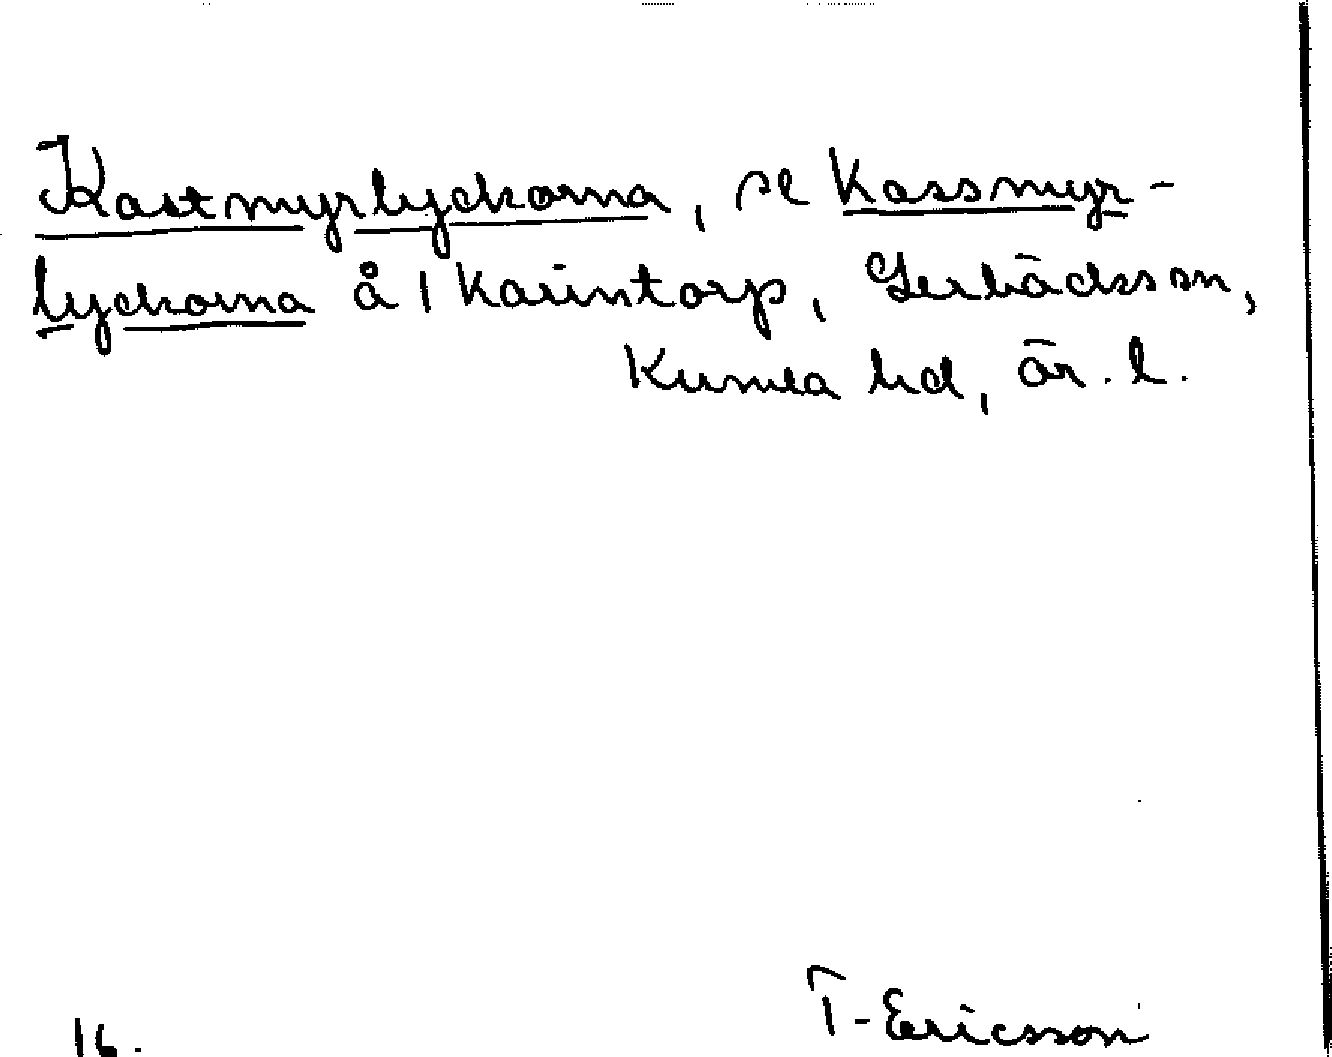 Kastmyrlyckorna, se Kassmyr-
lyckorna å 1 Karintorp, Lerbäcks sn,
Kumla hd, är. l.
T. Ericsson
16.